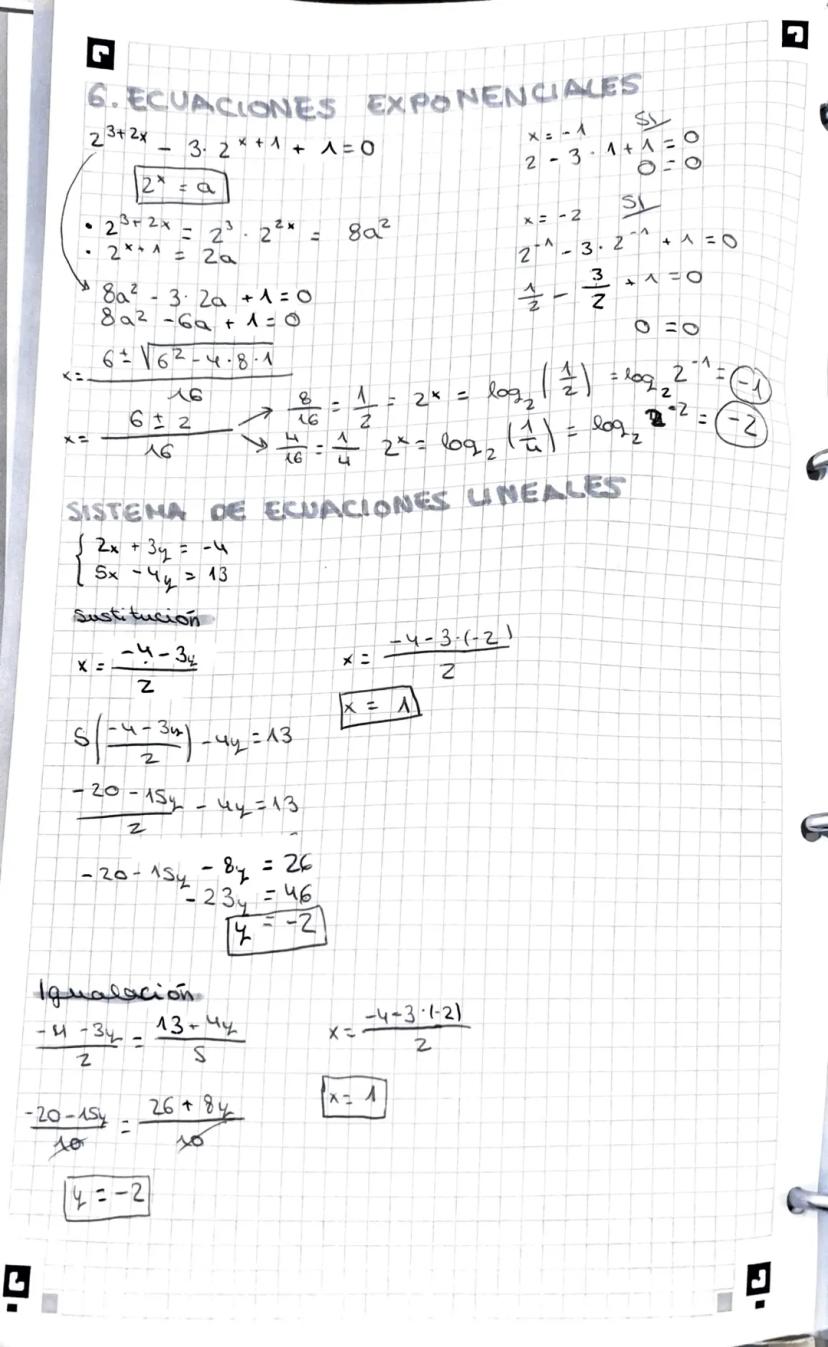 6. ECUACIONES EXPONENCIALES
2^{3+2x} - 3 · 2^{x+1} + 1 = 0
2^x = a
• 2^{3+2x} = 2^3 · 2^{2x} = 8a^2
• 2^{x+1} = 2a
8a^2 - 3 · 2a + 1 = 0
8a^2 - 6a + 1 = 0
x = \frac{6 ± √(6^2 - 4 · 8 · 1)}{16}
x = \frac{6 ± 2}{16}
→ \frac{8}{16} = \frac{1}{2} = 2^x = log_2 (\frac{1}{2}) = log_2 2^{-1} = -1
→ \frac{4}{16} = \frac{1}{4} 2^x = log_2 (\frac{1}{4}) = log_2 2^{-2} = -2
x = -1 SI
2 - 3 · 1 + 1 = 0
0 = 0
x = -2 SI
2^{-1} - 3 · 2^{-1} + 1 = 0
\frac{1}{2} - \frac{3}{2} + 1 = 0
0 = 0
SISTEMA DE ECUACIONES LINEALES
2x + 3y = -4
5x - 4y = 13
Sustitución
x = \frac{-4 - 3y}{2}
5(\frac{-4 - 3y}{2}) - 4y = 13
\frac{-20 - 15y}{2} - 4y = 13
-20 - 15y - 8y = 26
-23y = 46
y = -2
x = \frac{-4 - 3 · (-2)}{2}
x = 1
Igualación
\frac{-4 - 3y}{2} = \frac{13 + 4y}{5}
\frac{-20 - 15y}{10} = \frac{26 + 8y}{10}
y = -2
x = \frac{-4 - 3 · (-2)}{2}
x = 1